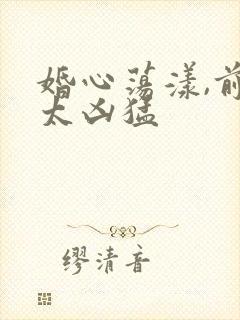 婚心荡漾,前
太凶猛
缪清音